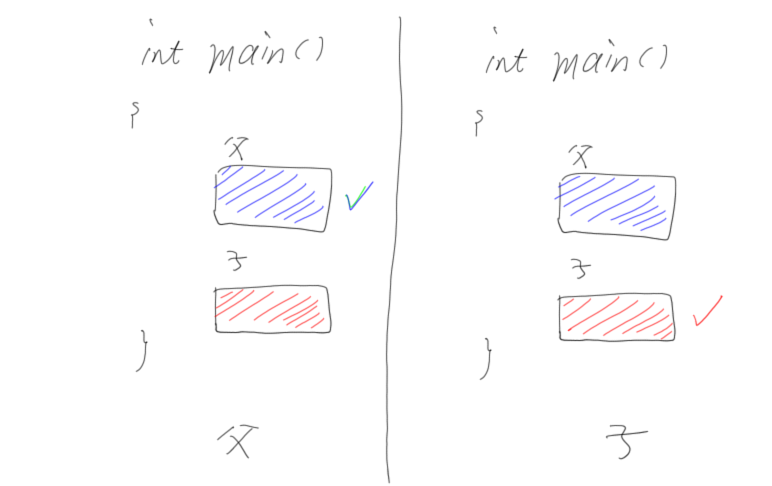 int main()
{
父
子
}
父
int main()
{
父
子
}
子